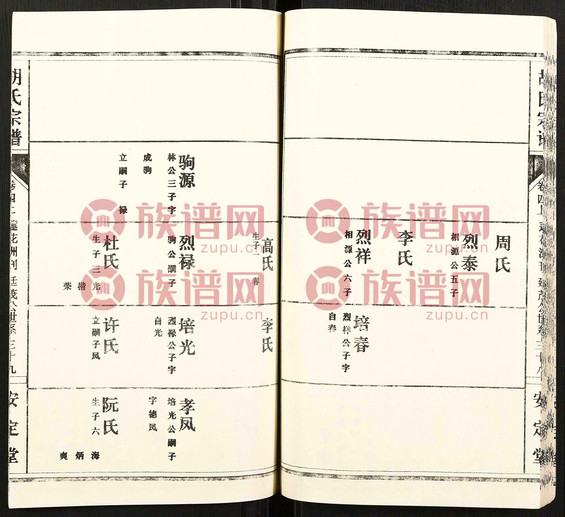 周氏
烈泰
相源公五子
李氏
烈祥
相源公六子
培春
烈祥公子字
自春
高氏
生子一 春
李氏
驹源
林公三子字
成驹
立嗣子 禄
烈禄
驹公嗣子
杜氏
生子三 光 楷 荣
培光
烈禄公子字
自光
许氏
立嗣子凤
孝凤
培光公嗣子
字德凤
阮氏
生子六 海 炳 爽
胡氏宗谱
卷四上
三十九
安定堂
胡氏宗谱
卷四上
三十八
安定堂
族谱网
zupu.cn
族谱网
zupu.cn
族谱网
zupu.cn
族谱网
zupu.cn